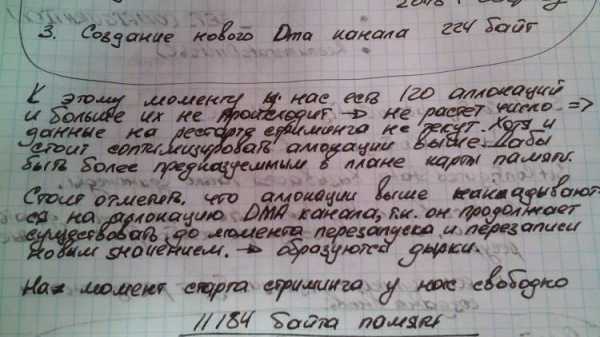 3. Создание нового Dma канала 224 байт
К этому моменту у нас есть 120 аллокаций
и больше их не происходит → не растет число =>
данные на рестарте стриминга не текут. Хотя и
стоит соптимизировать аллокации выше. Дабы
быть более предсказуемым в плане карты памяти.
Стоит отметить, что аллокации выше накладывают-
ся на аллокацию DMA канала, т.к. он продолжает
существовать до момента перезапуска и перезаписи
новым значением. → образуются дырки.
На момент старта стриминга у нас свободно
11184 байта памяти